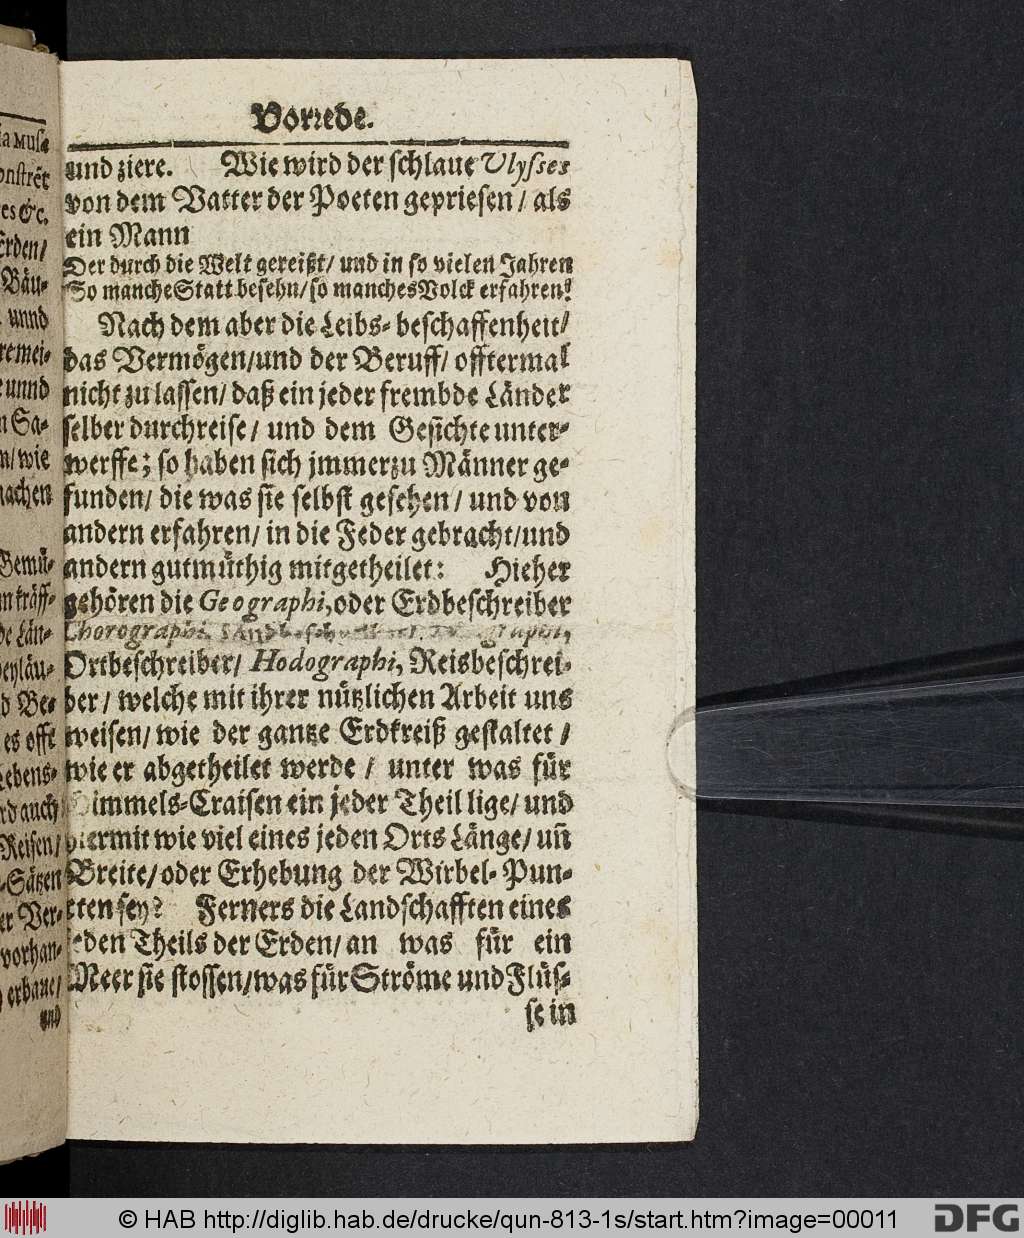 Vorrede.
und ziere. Wie wird der schlaue Ulysses
von dem Vatter der Poeten gepriesen / als
ein Mann
Der durch die Welt gereißt/ und in so vielen Jahren
So manche Statt besehn/ so manches Volck erfahren!
Nach dem aber die Leibs-beschaffenheit/
das Vermögen/und der Beruff/ offtermal
nicht zu lassen/ daß ein jeder frembde Länder
selber durchreise/ und dem Gesichte unter-
werffe; so haben sich jmmerzu Männer ge-
funden/ die was sie selbst gesehen/ und von
andern erfahren/ in die Feder gebracht/und
andern gutmüthig mitgetheilet: Hieher
gehören die Geographi, oder Erdbeschreiber
Chorographi,
Ortbeschreiber/ Hodographi, Reisbeschrei-
ber/ welche mit ihrer nützlichen Arbeit uns
weisen/ wie der gantze Erdkreiß gestaltet /
wie er abgetheilet werde / unter was für
Himmels-Craisen ein jeder Theil lige/ und
hiermit wie viel eines jeden Orts Länge/ uñ
Breite/ oder Erhebung der Wirbel-Pun-
cten sey? Ferners die Landschafften eines
jeden Theils der Erden/ an was für ein
Meer sie stossen/was für Ströme und Flüs-
se in
onstrẽt
es &c.
Erden/
Bäu-
unnd
remei-
unnd
n Sa-
n/ wie
nachen
Gemü-
n kräff-
de Län-
beyläu-
d Be-
es offt
Lebens-
rd auch
Reisen/
-Sätzen
er Ver-
vorhan-
erbaue/
und
© HAB http://diglib.hab.de/drucke/qun-813-1s/start.htm?image=00011
DFG